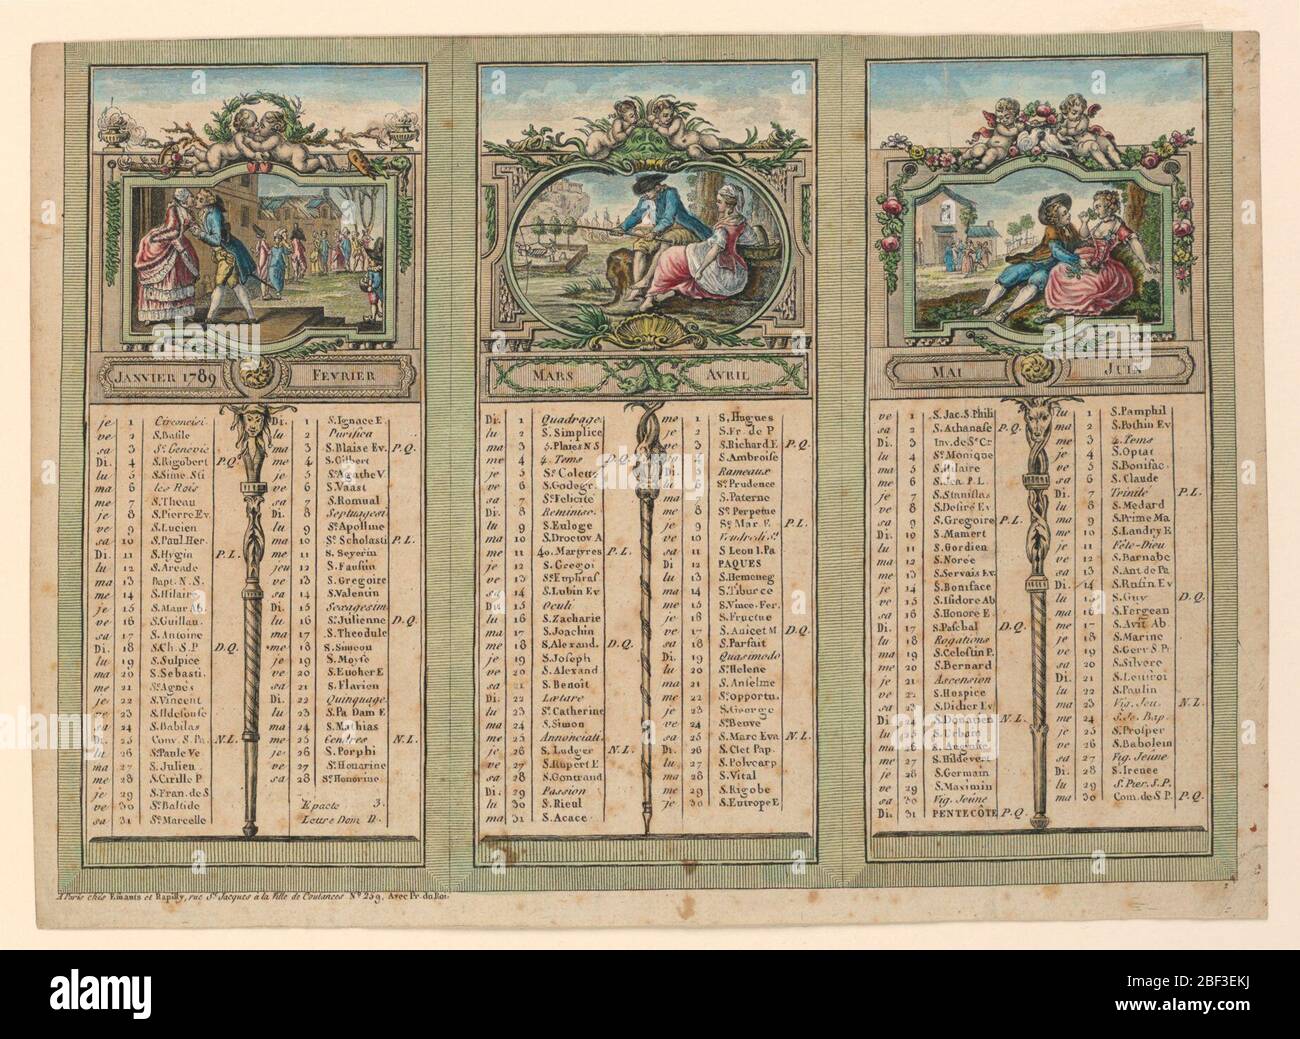 JANVIER 1789
FEVRIER
je 1 Circonciſi
ve 2 S. Basile
sa 3 Ste Genevie
Di. 4 S. Rigobert P.Q.
lu 5 S. Sime. Sti
ma 6 les Rois
me 7 S. Theau
je 8 S. Pierre Ev.
ve 9 S. Lucien
sa 10 S. Paul Her.
Di. 11 S. Hygin P.L.
lu 12 S. Arcade
ma 13 Bapt. N.S.
me 14 S. Hilaire
je 15 S. Maur Ab.
ve 16 S. Guillau.
sa 17 S. Antoine
Di. 18 S. Ch. S.P. D.Q.
lu 19 S. Sulpice
ma 20 S. Sebasti.
me 21 Ste Agnès
je 22 S. Vincent
ve 23 S. Ildefonse
sa 24 S. Babilas
Di. 25 Conv. S. Pa. N.L.
lu 26 Ste Paule Ve
ma 27 S. Julien
me 28 S. Cirille P
je 29 S. Fran. de S
ve 30 Ste Batilde
sa 31 Ste Marcelle
Di. 1 S. Ignace E.
lu 2 Purifica
ma 3 S. Blaise Ev. P.Q.
me 4 S. Gilbert
je 5 Ste Agathe V.
ve 6 S. Vaast
sa 7 S. Romual
Di. 8 Septuagesi
lu 9 Ste Apolline
ma 10 Ste Scholasti P.L.
me 11 S. Severin
jeu 12 S. Faustin
ve 13 S. Gregoire
sa 14 S. Valentin
Di. 15 Sexagesim.
lu 16 Ste Julienne D.Q.
ma 17 S. Theodule
me 18 S. Simeon
je 19 S. Moyse
ve 20 S. Eucher E
sa 21 S. Flavien
Di. 22 Quinquage.
lu 23 S. Pa Dam E
ma 24 S. Mathias
me 25 Cendres N.L.
je 26 S. Porphi
ve 27 Ste Honorine
sa 28 Ste Honorine
Epacte 3.
Lettre Dom D.
MARS
AVRIL
Di. 1 Quadrage.
lu 2 S. Simplice
ma 3 5. Plaies N S
me 4 4. Tems P.Q.
je 5 Ste Colette
ve 6 S. Godegr.
sa 7 Ste Felicité
Di. 8 Reminisc.
lu 9 S. Euloge
ma 10 S. Droctov A
me 11 40. Martyres P.L.
je 12 S. Gregoi
ve 13 Ste Euphras
sa 14 S. Lubin Ev
Di. 15 Oculi
lu 16 S. Zacharie
ma 17 S. Joachin
me 18 S. Alexand. D.Q.
je 19 S. Joseph
ve 20 S. Alexand
sa 21 S. Benoît
Di. 22 Lætare
lu 23 Ste Catherine
ma 24 S. Simon
me 25 Annonciati.
je 26 S. Ludger N.L.
ve 27 S. Rupert E
sa 28 S. Gontrand
Di. 29 Passion
lu 30 S. Rieul
ma 31 S. Acace
me 1 S. Hugues
je 2 S. Fr. de P
ve 3 S. Richard E P.Q.
sa 4 S. Ambroise
Di. 5 Rameaux
lu 6 Ste Prudence
ma 7 S. Paterne
me 8 Ste Perpetue
je 9 Ste Mar. E P.L.
ve 10 Vendredi St
sa 11 S Leon I. Pa
Di 12 PAQUES
lu 13 S. Hemeneg
ma 14 S. Tiburce
me 15 S. Vinc. Fer.
je 16 S. Fructue
ve 17 S. Anicet M D.Q.
sa 18 S. Parfait
Di. 19 Quasimodo
lu 20 Ste Helene
ma 21 S. Anselme
me 22 Ste opportu.
je 23 S. George
ve 24 Ste Beuve
sa 25 S. Marc Eva N.L.
Di. 26 S. Clet Pap.
lu 27 S. Polycarp
ma 28 S. Vital
me 29 S. Rigobe
je 30 S. Eutrope E
MAI
JUIN
ve 1 S. Jac. S. Phili
sa 2 S. Athanase P.Q.
Di. 3 Inv. de Ste Cr
lu 4 Ste Monique
ma 5 S. Hilaire
me 6 S. Jea. P.L.
je 7 S. Stanislas
ve 8 S. Desiré Ev
sa 9 S. Gregoire P.L.
Di. 10 S. Mamert
lu 11 S. Gordien
ma 12 S. Norée
me 13 S. Servais Ev.
je 14 S. Boniface
ve 15 S. Isidore Ab
sa 16 S. Honoré E
Di. 17 S. Paschal D.Q.
lu 18 Rogations
ma 19 S. Celestin P.
me 20 S. Bernard
je 21 Ascension
ve 22 S. Hospice
sa 23 S. Didier Ev
Di. 24 S. Donatien N.L.
lu 25 S. Urbain
ma 26 S. Augustin
me 27 S. Hildevert
je 28 S. Germain
ve 29 S. Maximin
sa 30 Vig. Jeûne
Di. 31 PENTECÔTE P.Q.
lu 1 S. Pamphil
ma 2 S. Pothin Ev
me 3 4. Tems
je 4 S. Optat
ve 5 S. Bonifac.
sa 6 S. Claude
Di. 7 Trinité P.L.
lu 8 S. Medard
ma 9 S. Prime Ma
me 10 S. Landry E
je 11 Fête-Dieu
ve 12 S. Barnabe
sa 13 S. Ant. de Pa
Di. 14 S. Rufin Ev
lu 15 S. Guy D.Q.
ma 16 S. Fergean
me 17 S. Avit Ab.
je 18 S. Marine
ve 19 S. Gerv S. Pr
sa 20 S. Silvere
Di. 21 S. Leufroi
lu 22 S. Paulin
ma 23 Vig. Jeu. N.L.
me 24 S. Je. Bap.
je 25 S. Prosper
ve 26 S. Babolein
sa 27 Vig. Jeûne
Di. 28 S. Irenée
lu 29 S. Pier. S. P.
ma 30 Com. de S P. P.Q.
A Paris chés Esnauts et Rapilly, rue St Jacques à la Ville de Coutances No 259. Avec Pr. du Roi.
alamy
Image ID: 2BF3EKJ
www.alamy.com